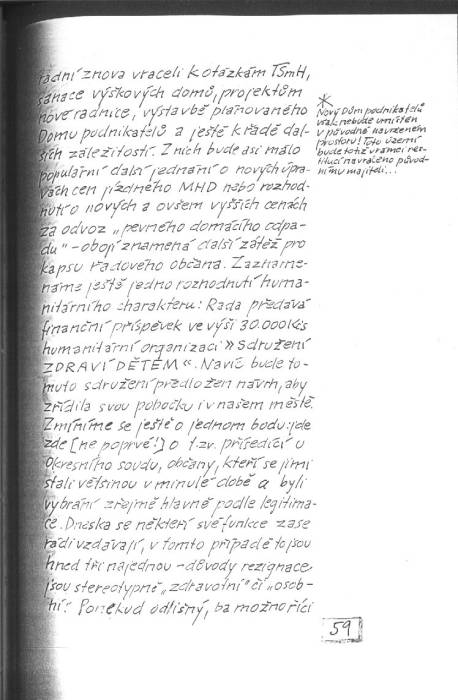 řadní znova vraceli k otázkám TSmH,
sanace výškových domů, projektům
nové radnice, výstavbě plánovaného
Domu podnikatelů a ještě k řadě dal-
ších záležitostí. Z nich bude asi málo
populární další jednání o nových úpra-
vách cen jízdného MHD nebo rozhod-
nutí o nových a ovšem vyšších cenách
za odvoz „pevného domácího odpa-
du" - obojí znamená další zátěž pro
kapsu řadového občana. Zazname-
náme ještě jedno rozhodnutí huma-
nitárního charakteru: Rada předává
finanční příspěvek ve výši 30.000 Kčs
humanitární organizaci » Sdružení
ZDRAVÍ DĚTEM «. Navíc bude to-
muto sdružení předložen návrh, aby
zřídila svou pobočku i v našem městě.
Zmíníme se ještě o jednom bodu: jde
zde [ne poprvé!] o t.zv. přísedící u
Okresního soudu, občany, kteří se jimi
stali většinou v minulé době a byli
vybráni zřejmě hlavně podle legitima-
ce. Dneska se někteří své funkce zase
rádi vzdávají, v tomto případě to jsou
hned tři najednou - důvody rezignace
jsou stereotypně „zdravotní" či „osob-
ní". Poněkud odlišný, ba možno říci
*
Nový Dům podnikatelů
však nebude umístěn
v původně navrženém
prostoru! Toto území
bude totiž v rámci res-
titucí navráceno původ-
nímu majiteli...
59